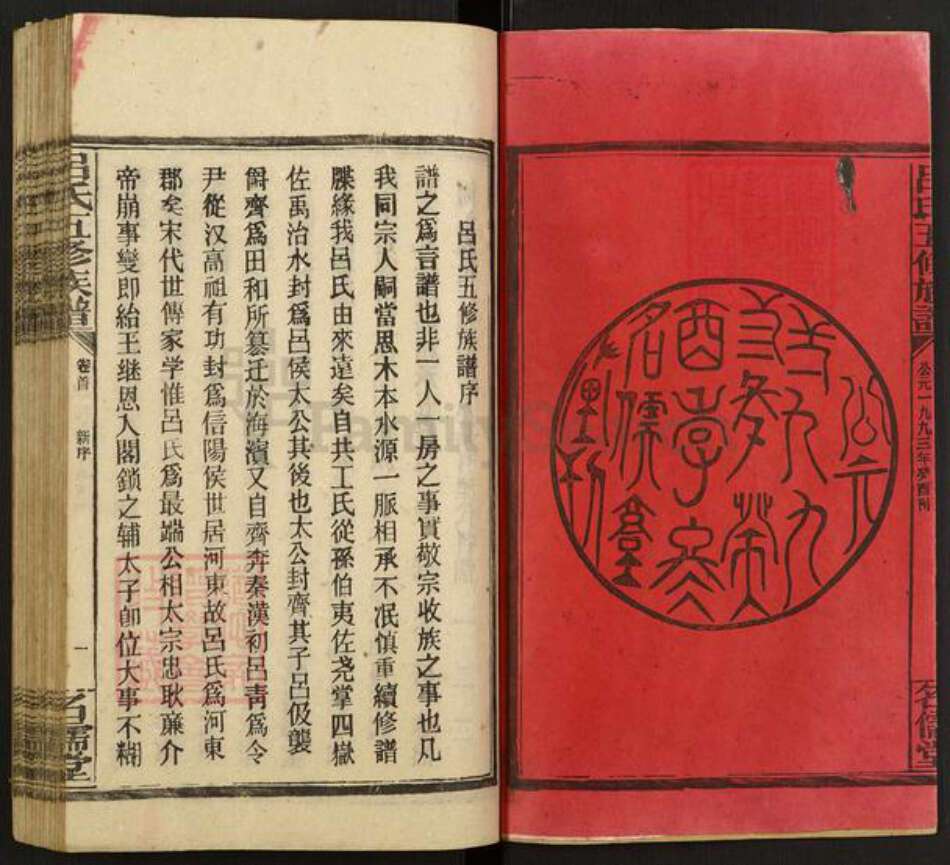 呂氏五修族譜
公元一九九三年癸酉
名儒堂
公元
酉季冬
名儒堂
呂氏五修族譜序
譜之爲言譜也非一人一房之事實敬宗收族之事也凡
我同宗人嗣當思木本水源一脈相承不泯慎重續修譜
牒緣我呂氏由來遠矣自共工氏從孫伯夷佐尧掌四嶽
佐禹治水封爲呂侯太公其後也太公封齊其子呂伋襲
爵齊爲田和所篡迁於海濱又自齊奔秦漢初呂靑爲令
尹從汉高祖有功封爲信陽侯世居河東故呂氏爲河東
郡矣宋代世傳家学惟呂氏爲最端公相太宗忠耿亷介
帝崩事變即紿王继恩入閣鎖之辅太子卽位大事不糊
呂氏五修族譜
卷首
新序
一
名儒堂